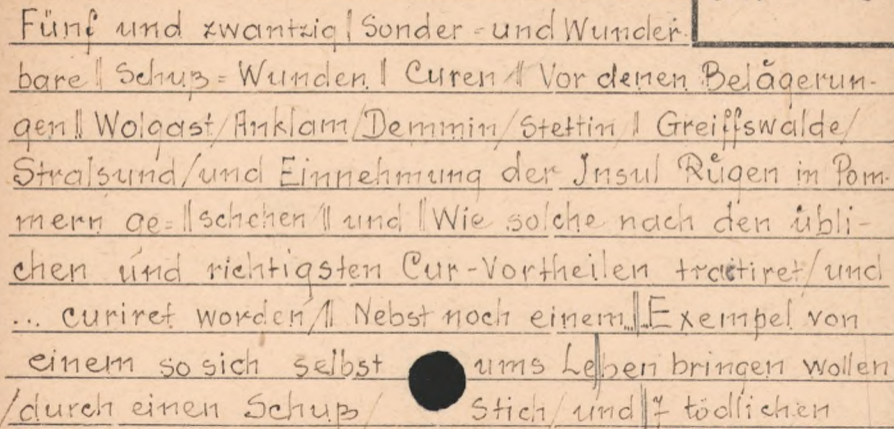 Fünf und zwantzig | Sonder = und Wunder-
bare || Schuß = Wunden | Curen /|| Vor denen Belågerun-
gen || Wolgast/Anklam/Demmin/Stettin/| Greiffswalde/
Stralsund/und Einnehmung der Insul Růgen in Pom-
mern ge= || schehen/|| und || Wie solche nach den übli-
chen und richtigsten Cur-Vortheilen tractiret/und
... curiret worden/|| Nebst noch einem || Exempel von
einem so sich selbst ums Le|ben bringen wollen
/durch einen Schuß/ Stich/und || 7 tödlichen